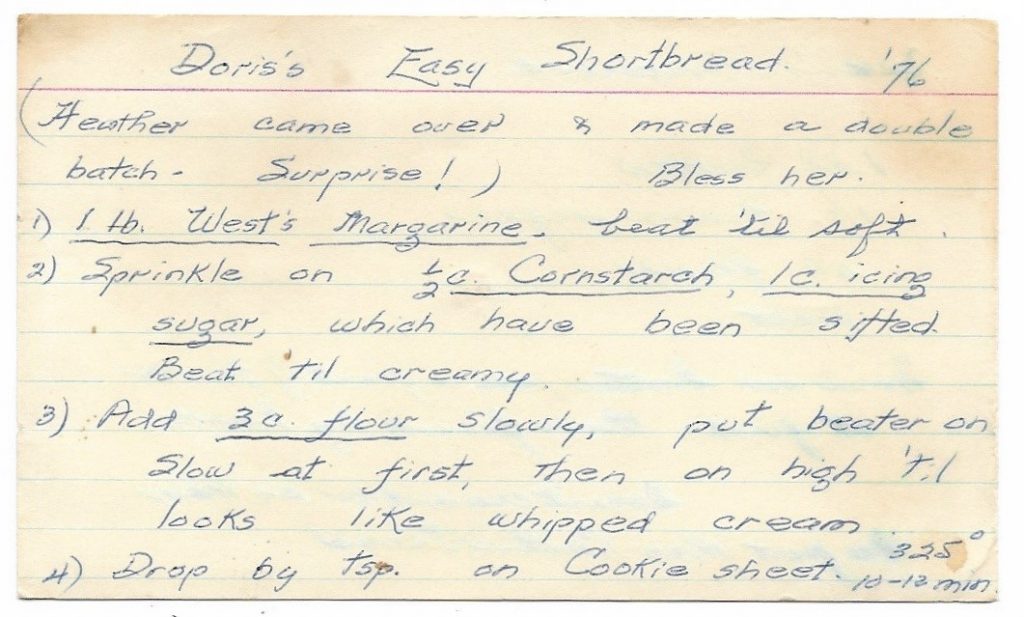 Doris's Easy Shortbread. '76
(Heather came over & made a double
batch - Surprise!) Bless her.
1) 1 lb. West's Margarine. beat 'til soft.
2) Sprinkle on ½ c. Cornstarch, 1 c. icing
sugar, which have been sifted.
Beat 'til creamy.
3) Add 3 c. flour slowly, put beater on
slow at first, then on high 'til
looks like whipped cream
4) Drop by tsp. on Cookie sheet. 325°
10-12 min